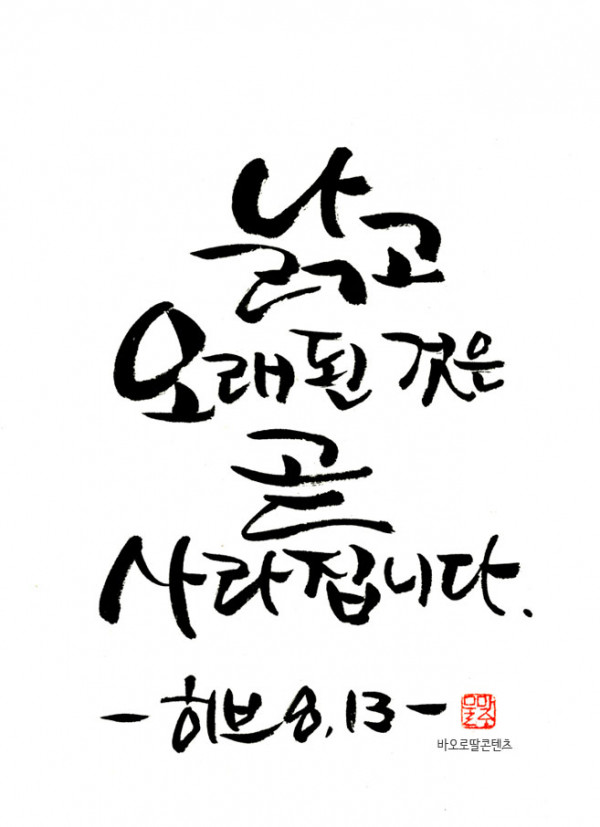 낡고
오래된 것은
곧
사라집니다.
- 히브 8,13 -
바오로딸콘텐츠